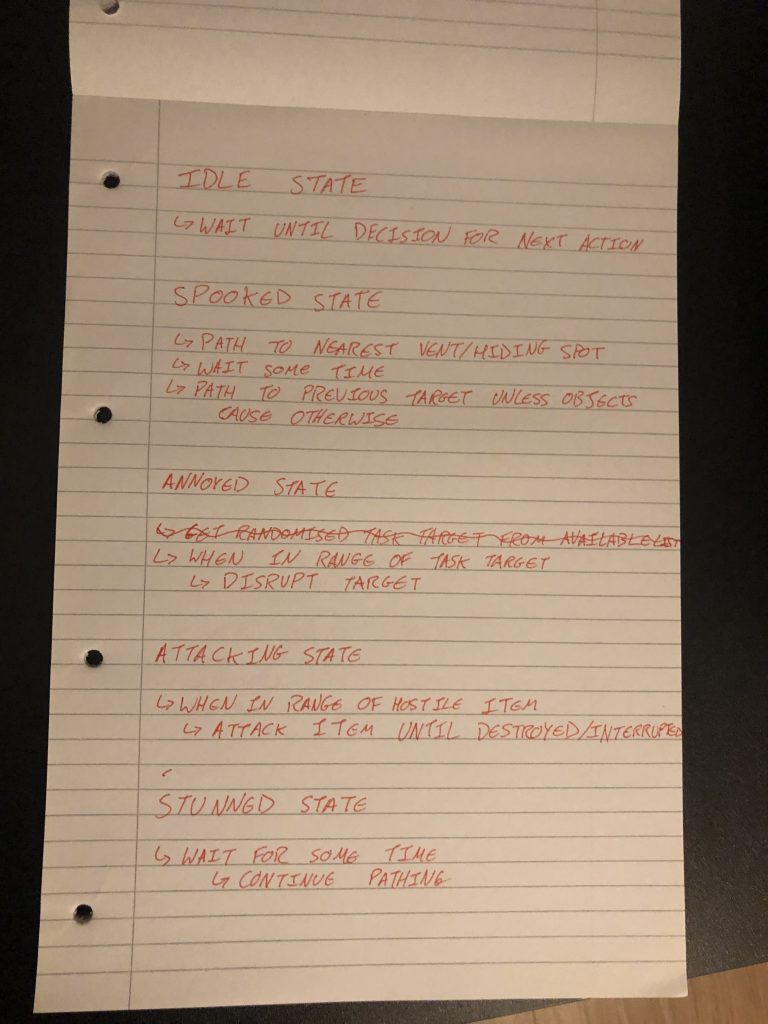 IDLE STATE
↳ WAIT UNTIL DECISION FOR NEXT ACTION
SPOOKED STATE
↳ PATH TO NEAREST VENT/HIDING SPOT
↳ WAIT SOME TIME
↳ PATH TO PREVIOUS TARGET UNLESS OBJECTS
CAUSE OTHERWISE
ANNOYED STATE
↳ GET RANDOMISED TASK TARGET FROM AVAILABLE LIST
↳ WHEN IN RANGE OF TASK TARGET
↳ DISRUPT TARGET
ATTACKING STATE
↳ WHEN IN RANGE OF HOSTILE ITEM
↳ ATTACK ITEM UNTIL DESTROYED/INTERRUPTED
STUNNED STATE
↳ WAIT FOR SOME TIME
↳ CONTINUE PATHING